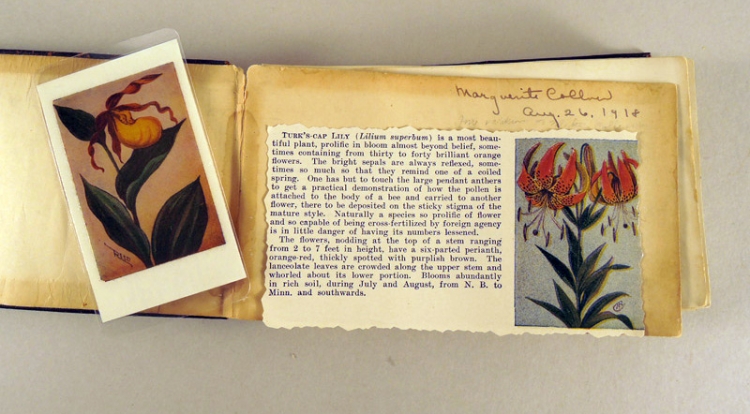 Marguerite
Aug. 26, 1918
TURK'S-CAP LILY (Lilium superbum) is a most beau-
tiful plant, prolific in bloom almost beyond belief, some-
times containing from thirty to forty brilliant orange
flowers. The bright sepals are always reflexed, some-
times so much so that they remind one of a coiled
spring. One has but to touch the large pendant anthers
to get a practical demonstration of how the pollen is
attached to the body of a bee and carried to another
flower, there to be deposited on the sticky stigma of the
mature style. Naturally a species so prolific of flower
and so capable of being cross-fertilized by foreign agency
is in little danger of having its numbers lessened.
The flowers, nodding at the top of a stem ranging
from 2 to 7 feet in height, have a six-parted perianth,
orange-red, thickly spotted with purplish brown. The
lanceolate leaves are crowded along the upper stem and
whorled about its lower portion. Blooms abundantly
in rich soil, during July and August, from N. B. to
Minn. and southwards.